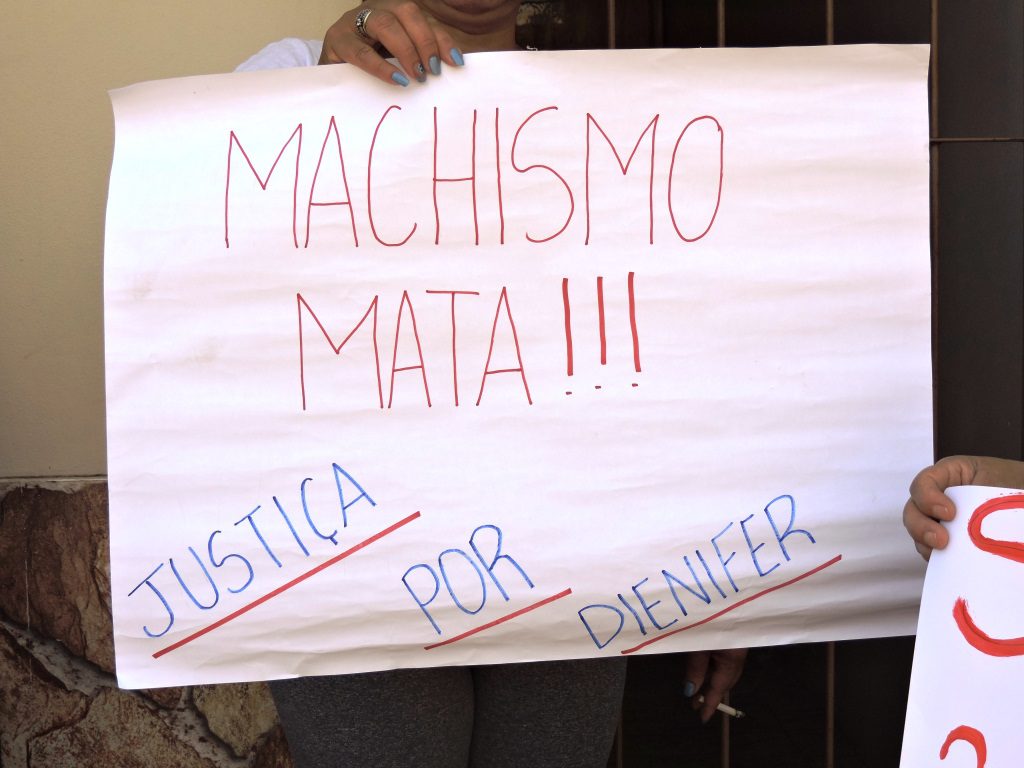 MACHISMO
MATA!!!
JUSTIÇA POR DIENIFER